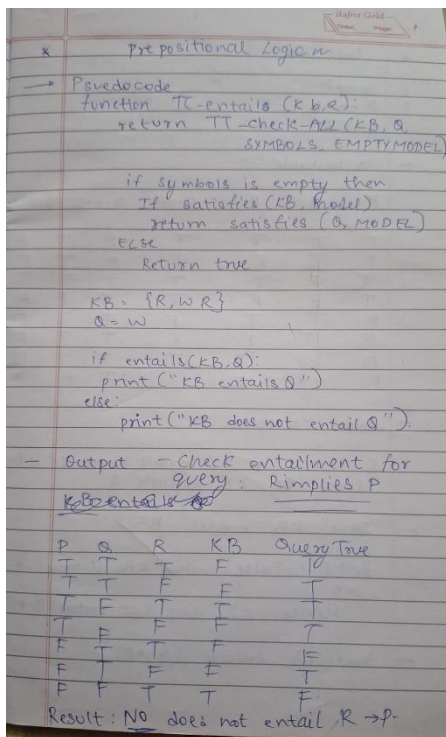 Bafna Gold
Date: Page:
* Prepositional Logic n
→ Psuedocode
function TT-entails (Kb, Q):
return TT-check-ALL (KB, Q,
SYMBOLS, EMPTYMODEL)
if symbols is empty then
If satisfies (KB, Model)
return satisfies (Q, MODEL)
Else
Return true
KB = {R, W R}
Q = W
if entails (KB, Q):
print ("KB entails Q")
else:
print ("KB does not entail Q").
- Output - Check entailment for
query: Rimplies P
P Q R KB Query True
T T T F T
T T F F T
T F T T T
T F F F T
F T T F F
F T F F T
F F T T F
Result: No does not entail R → P.